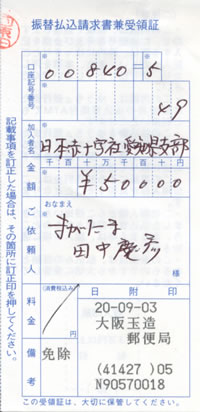 振替払込請求書兼受領証
口座記号番号
00840=5
49
加入者名
日本赤十字社愛媛県支部
金額
千百十万千百十円
¥50000
ご依頼人
おなまえ
田中慶彦
様
料金
(消費税込み)
円
日附印
20-09-03
大阪玉造
郵便局
備考
免除
(41427)05
N90570018
この受領証は、大切に保管してください。
記載事項を訂正した場合は、その箇所に訂正印を押してください。